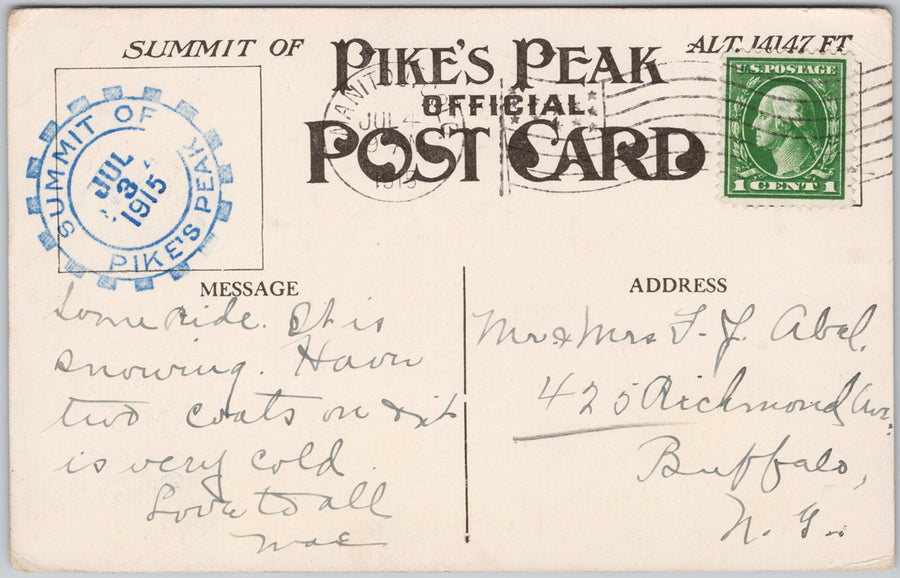 SUMMIT OF PIKE'S PEAK ALT. 14147 FT
OFFICIAL
POST CARD
SUMMIT OF PIKE'S PEAK
JUL
3
1915
MANITOU
JUL 4
1915
U.S. POSTAGE
1 CENT 1
MESSAGE
Some ride. It is
snowing. Have
two coats on & it
is very cold
Love to all
Mae
ADDRESS
Mr & Mrs F. J. Abel.
425 Richmond Ave.
Buffalo,
N. Y.